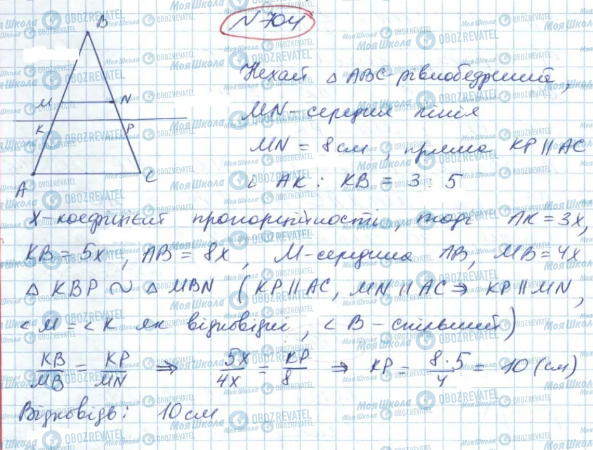 N 704
B
M N
K P
A C
Нехай △ ABC - рівнобедрений,
MN - середня лінія
MN = 8 см, пряма KP ∥ AC
і AK : KB = 3 : 5
X - коефіцієнт пропорційності, тоді AK = 3x,
KB = 5x, AB = 8x, M - середина AB, MB = 4x
△ KBP ~ △ MBN (KP ∥ AC, MN ∥ AC ⇒ KP ∥ MN,
∠M = ∠K як відповідні, ∠B - спільний)
KB/MB = KP/MN ⇒ 5x/4x = KP/8 ⇒ KP = 8·5/4 = 10 (см)
Відповідь: 10 см
Моя Школа
OBOZREVATEL